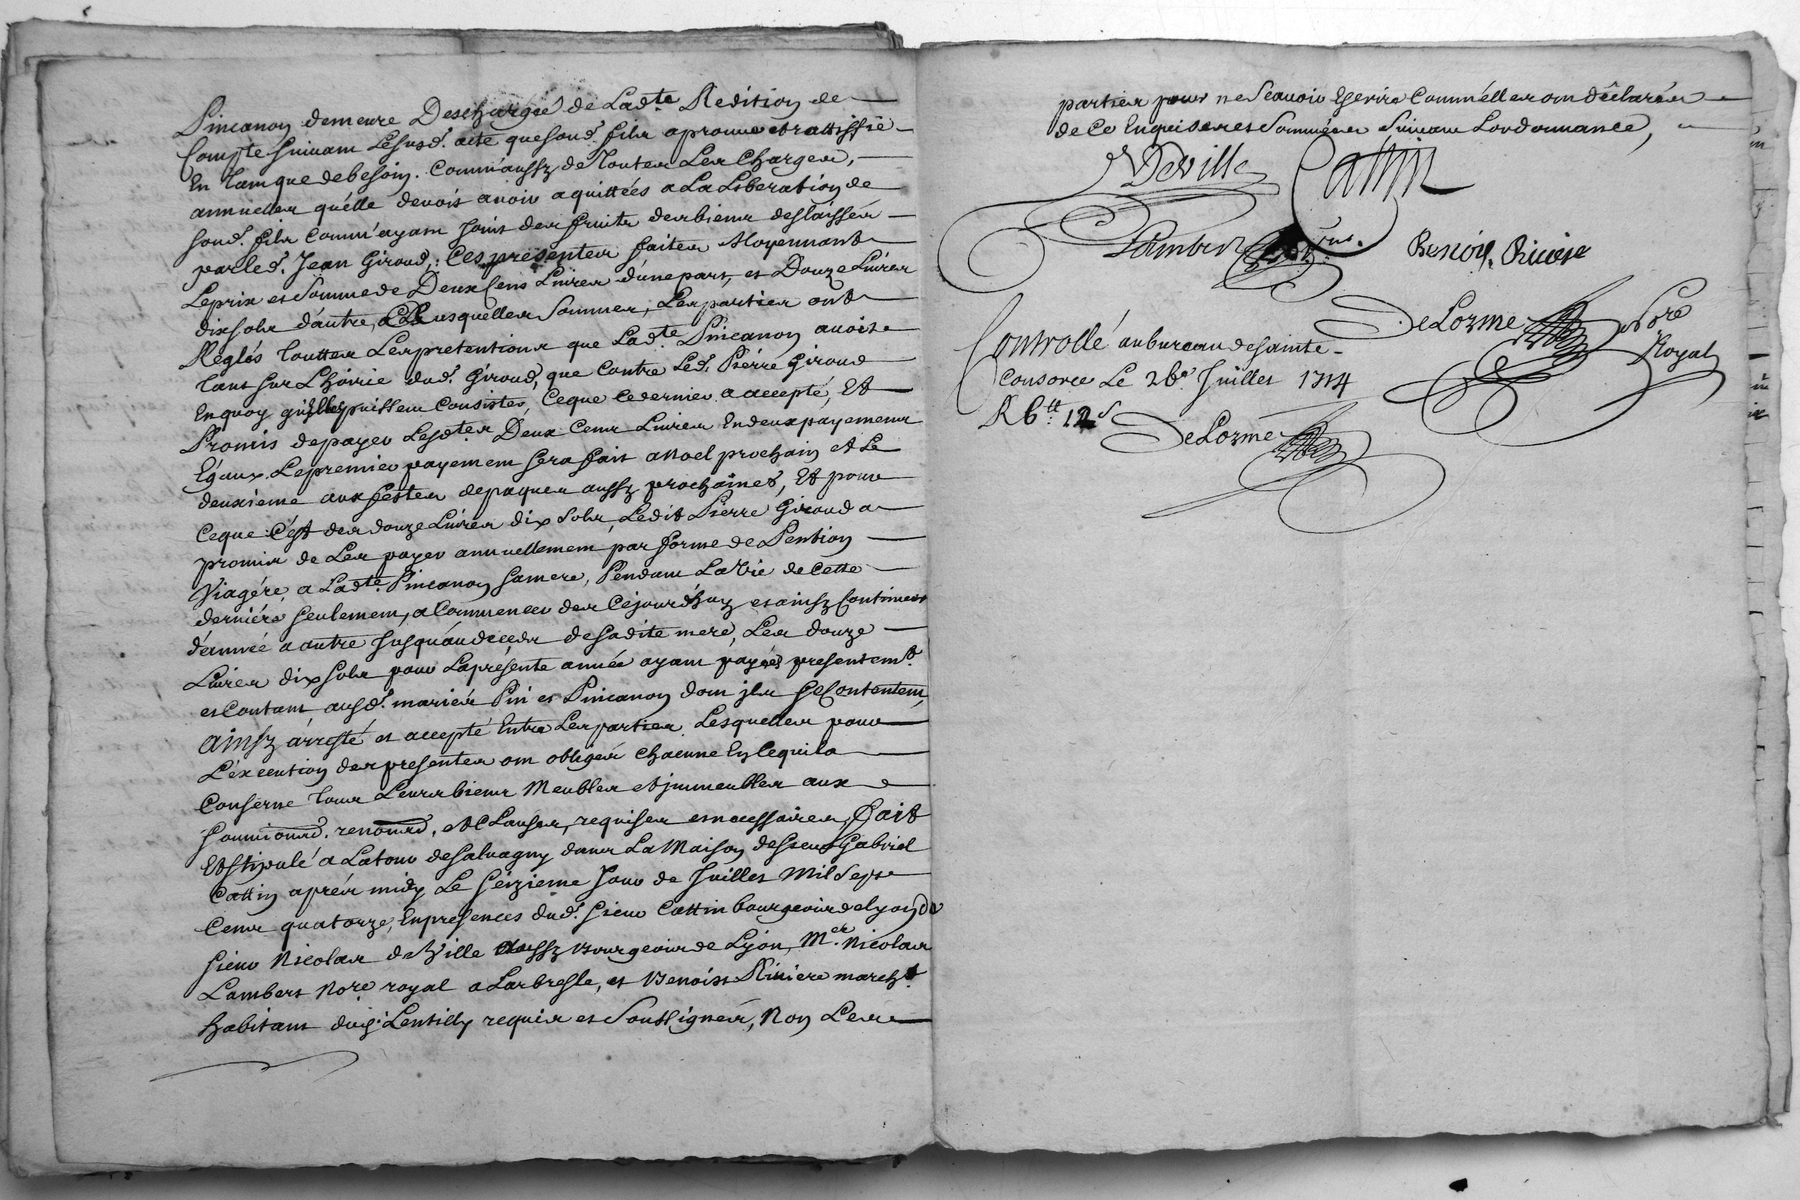 Pincanon demeure Deschargée de Ladte Redition de
Compte suivant Lesusd. acte quesond. fils aprouve et rattiffie
En tamque debesoin. Comm'aussy de toutes Les Charges,
annuelles qu'elle devoit avoir aquittées a La Liberation de
sond. fils Comm'ayant jouit des fruits desbiens deslaissés
parled. Jean Giroud,: Ces presentes faites Moyennant
Leprix et Somme de Deux Cens Livres d'une part, et Douze Livres
dix sols d'autre, a Lesquelles Sommes, Les parties ont
Réglés touttes Les pretentions que Ladte. Pincanon avoit
tant sur L'hoirie dud. Giroud, que Contre Led. Pierre Giroud
En quoy qu'elles puissent Consister, Ceque Cedernier a accepté, Et
Promis depayer Lesdtes Deux Cens Livres En deux payements
Egaux. Lepremier payement sera fait a Noel prochain et Le
deuxieme aux festes depaques aussy prochaines, Et pour
Ceque C'est des douze Livres dix sols, Ledit Pierre Giroud a
promis de Les payer annuellement par forme de Pention
Viagére, a Ladte. Pincanon samere, Pendant La Vie de Cette
derniére seulement, a Commencer des Cejourd'huy et ainsy Continuer
d'année a autre jusqu'au deceds desadite mere, Les douze
Livres dix sols pour Lapresente année ayant payées presentemt.
et Contant ausd. mariés Pin et Pincanon dont ils se Contentent,
Ainsy arresté et accepté Entre Les parties Lesquelles pour
L'execution des presentes ont obligés chacune En Cequi La
Conserne tous Leurs biens Meubles et immeubles aux
soumiond. renond, et Clauses, requises et necessaires, Fait
Et stipulé a Latour deSalvagny dans La Maison desieur Gabriel
Cattin aprés midy Le seizieme Jour de Juillet Mil Sept
Cens quatorze, En presences dud. sieur Cattin bourgeois de Lyon, de
sieur Nicolas deVille aussy Bourgeois de Lyon, Mer. Nicolas
Lambert Nore. royal a Larbresle, et Benoist Riviere marcht.
habitant dud. Lentilly requis et Soussignés, Non Les
parties pour ne Scavoir Escrire Comm'elles ont déclarées
de Ce Enquises et Sommées Suivant Lordonnance,
Deville Cattin
Lambert
Benoist Riviere
DeLorme Nore
Royal
Controllé au bureau de sainte
Consorce Le 26e Juillet 1714
R 6tt 12s
DeLorme